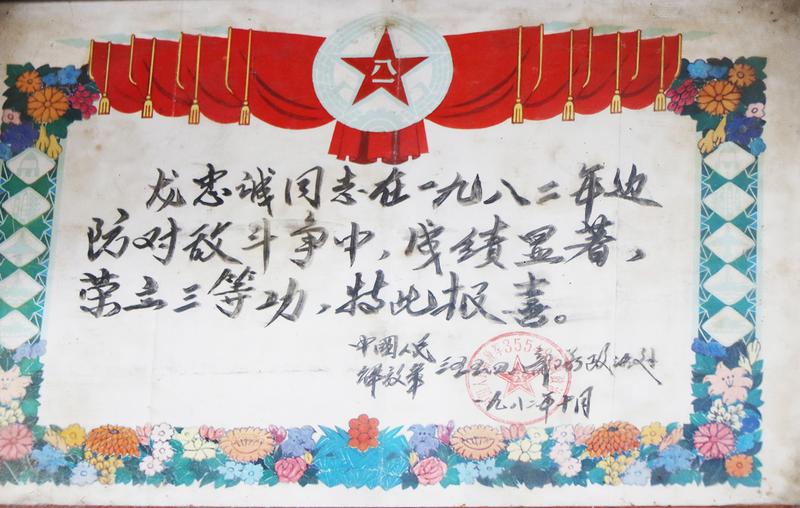 八一
龙忠诚同志在一九八二年边
防对敌斗争中，成绩显著，
荣立三等功，特此报喜。
中國人民
解放军
部队政治处
一九八二年十月